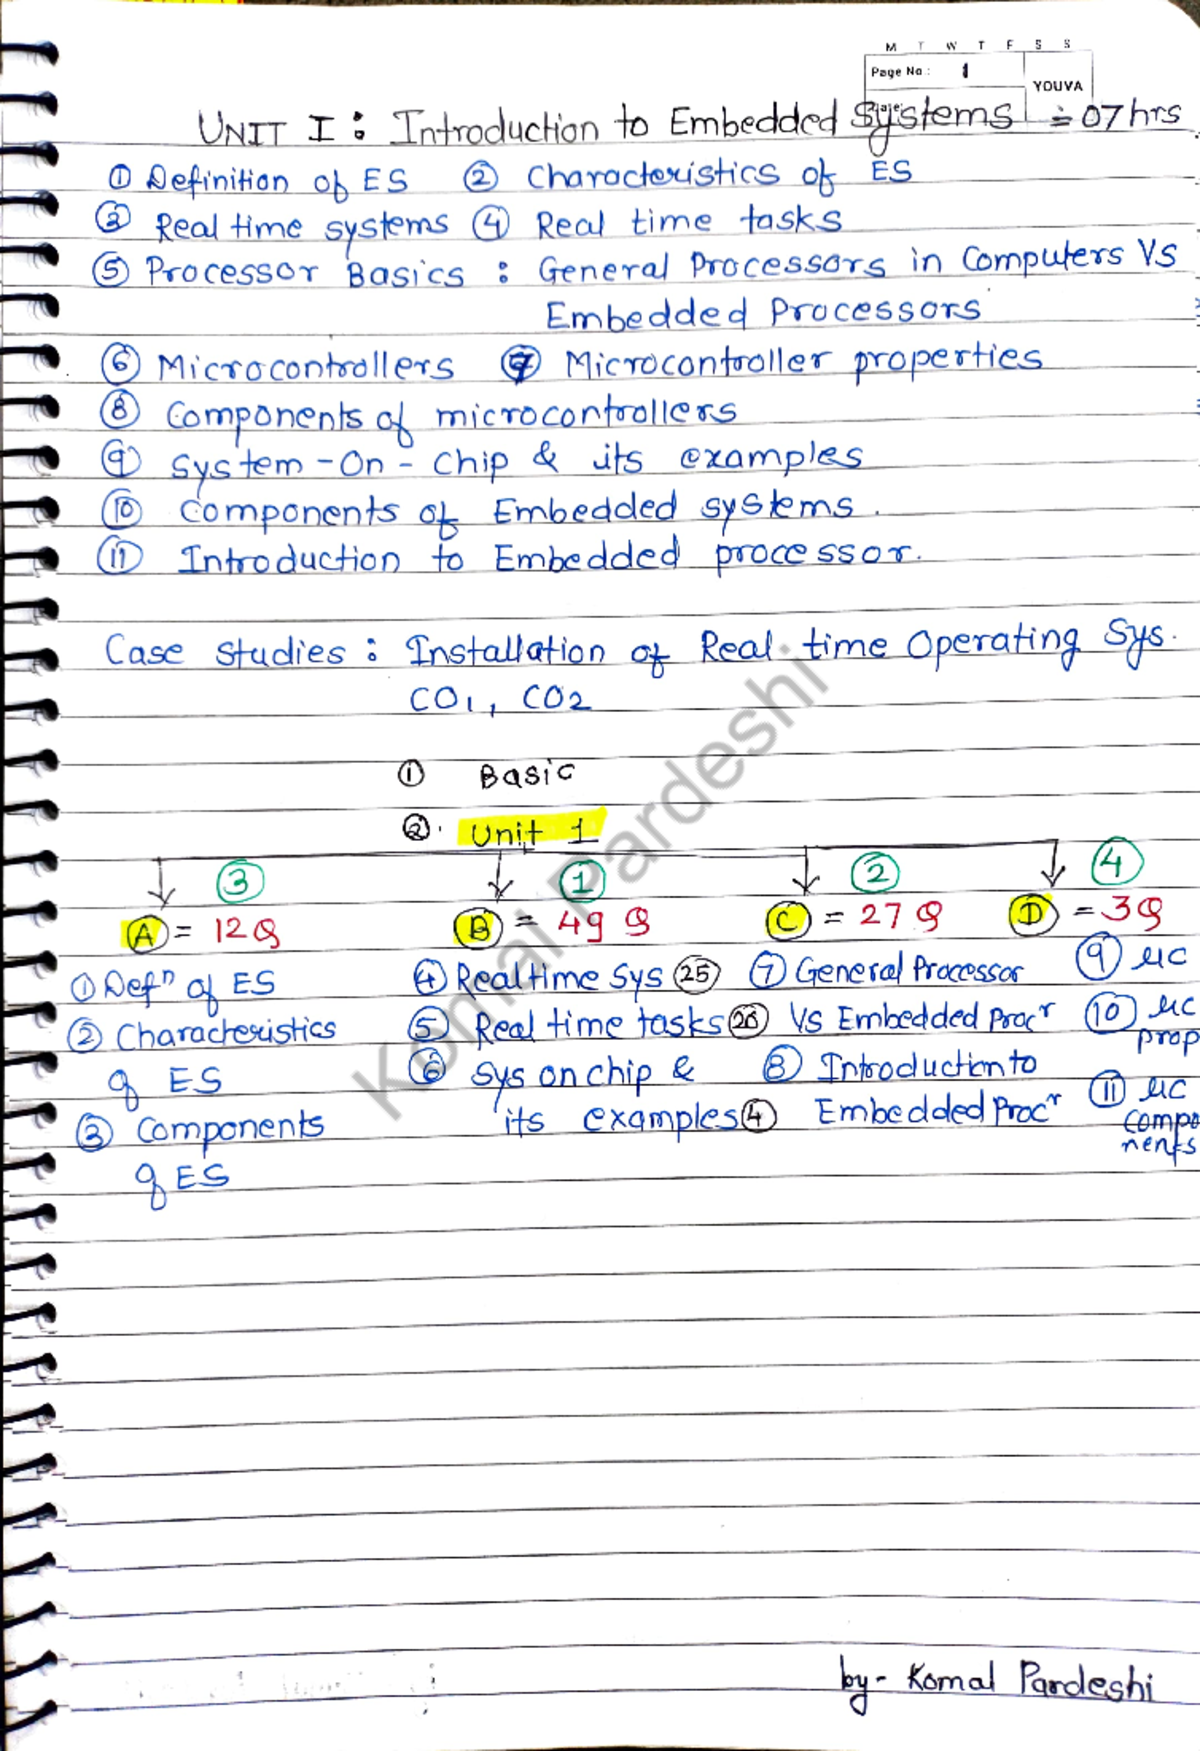 M T W T F S S
Page No.: 1
YOUVA
UNIT I : Introduction to Embedded Systems = 07 hrs
① Definition of ES ② Characteristics of ES
③ Real time systems ④ Real time tasks
⑤ Processor Basics : General Processors in Computers Vs
Embedded Processors
⑥ Microcontrollers ⑦ Microcontroller properties
⑧ Components of microcontrollers
⑨ System-On-Chip & its examples
⑩ Components of Embedded systems.
⑪ Introduction to Embedded processor.
Case Studies : Installation of Real time Operating Sys.
CO1, CO2
① Basic
②. Unit 1
③ ① ② ④
A = 12Q B = 49 Q C = 27 Q D = 3Q
① Defn of ES ④ Realtime Sys 25 ⑦ General Processor ⑨ μC
② Characteristics ⑤ Real time tasks 20 Vs Embedded Procr ⑩ μC
of ES ⑥ Sys on chip & ⑧ Introduction to prop
③ Components its examples ④ Embedded Procr ⑪ μC
of ES compo
nents
Komal Pardeshi
by- Komal Pardeshi